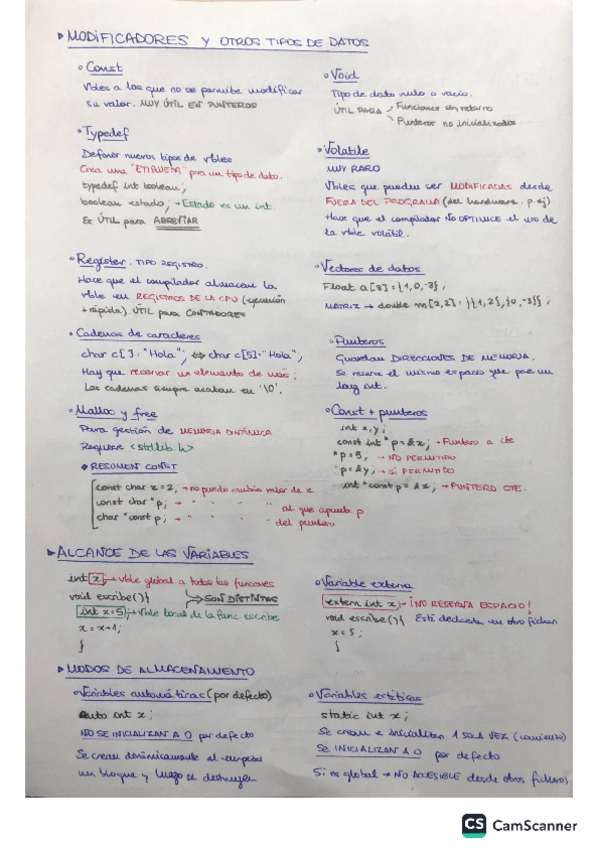 ▸ MODIFICADORES Y OTROS TIPOS DE DATOS
◦ Const
Vbles a las que no se permite modificar
su valor. MUY ÚTIL EN PUNTEROS
◦ Void
Tipo de dato nulo o vacío.
ÚTIL PARA Funciones sin retorno
Punteros no inicializados
◦ Typedef
Definir nuevos tipos de vbles
Crea una "ETIQUETA" para un tipo de dato.
typedef int boolean;
boolean estado; → Estado es un int.
Es ÚTIL para ABREVIAR
◦ Volatile
MUY RARO
Vbles que pueden ser MODIFICADAS desde
FUERA DEL PROGRAMA (del hardware, p ej)
Hace que el compilador NO OPTIMICE el uso de
la vble volátil.
◦ Register: TIPO REGISTRO.
Hace que el compilador almacene la
vble en REGISTROS DE LA CPU (ejecución
+ rápida). ÚTIL para CONTADORES
◦ Vectores de datos
Float a[3] = {1,0,-3};
MATRIZ → double m[2,2] = {{1,2},{0,-3}};
◦ Cadenas de caracteres
char c[] = "Hola"; ⇔ char c[5]="Hola";
Hay que reservar un elemento de más:
Las cadenas siempre acaban en '\0'.
◦ Punteros
Guardan DIRECCIONES DE MEMORIA.
Se reserva el mismo espacio que para un
long int.
◦ Malloc y free
Para gestión de MEMORIA DINÁMICA
Requiere <stdlib.h>
◦ Const + punteros
int x,y;
const int *p=&x; → Puntero a cte
*p=5; → NO PERMITIDO
p=&y; → SÍ PERMITIDO
int *const p = &x; → PUNTERO CTE.
❖ RESUMEN CONST
const char x=2; → no puedo cambiar valor de x
const char *p; → " " " al que apunta p
char *const p; → " " " del puntero
▸ ALCANCE DE LAS VARIABLES
int x; → Vble global a todas las funciones
void escribe(){ SON DISTINTAS
int x=5; → Vble local de la func. escribe
x=x+1;
}
◦ Variable externa
extern int x; → ¡NO RESERVA ESPACIO!
void escribe(){ Está declarada en otro fichero
x=5;
}
▸ MODOS DE ALMACENAMIENTO
◦ Variables automáticas (por defecto)
Auto int x;
NO SE INICIALIZAN A 0 por defecto
Se crean dinámicamente al empezar
un bloque y luego se destruyen
◦ Variables estáticas
static int x;
Se crean e inicializan 1 SOLA VEZ (comienzo)
SE INICIALIZAN A 0 por defecto
Si es global → NO ACCESIBLE desde otros ficheros
CS CamScanner